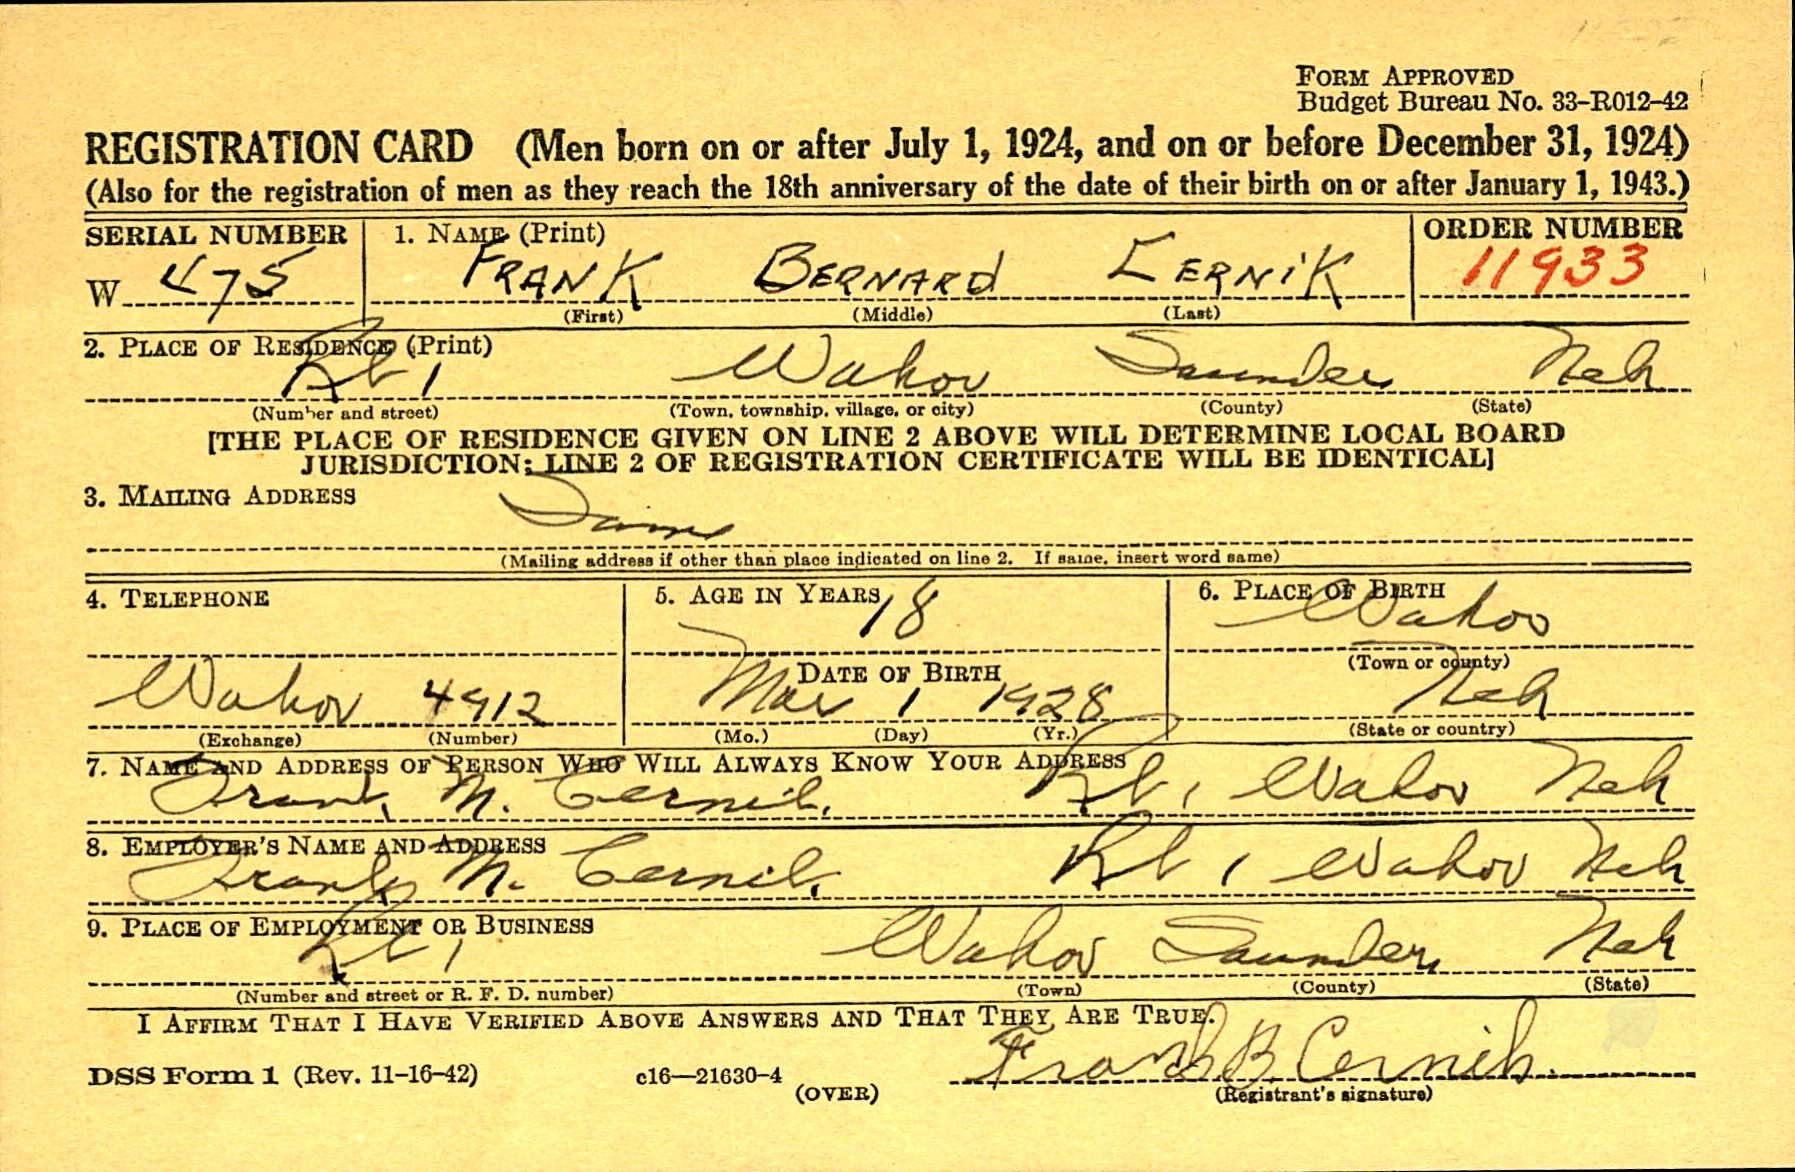 FORM APPROVED
Budget Bureau No. 33-R012-42
REGISTRATION CARD (Men born on or after July 1, 1924, and on or before December 31, 1924)
(Also for the registration of men as they reach the 18th anniversary of the date of their birth on or after January 1, 1943.)
SERIAL NUMBER 1. NAME (Print) ORDER NUMBER
W 475 FRANK BERNARD CERNIK 11933
(First) (Middle) (Last)
2. PLACE OF RESIDENCE (Print)
Rt 1 Wahoo Saunders Neb
(Number and street) (Town, township, village, or city) (County) (State)
[THE PLACE OF RESIDENCE GIVEN ON LINE 2 ABOVE WILL DETERMINE LOCAL BOARD
JURISDICTION; LINE 2 OF REGISTRATION CERTIFICATE WILL BE IDENTICAL]
3. MAILING ADDRESS
Same
(Mailing address if other than place indicated on line 2. If same, insert word same)
4. TELEPHONE 5. AGE IN YEARS 6. PLACE OF BIRTH
18 Wahoo
DATE OF BIRTH (Town or county)
Wahoo 4912 Mar 1 1928 Neb
(Exchange) (Number) (Mo.) (Day) (Yr.) (State or country)
7. NAME AND ADDRESS OF PERSON WHO WILL ALWAYS KNOW YOUR ADDRESS
Frank M. Cernik Rt 1 Wahoo Neb
8. EMPLOYER'S NAME AND ADDRESS
Frank M. Cernik Rt 1 Wahoo Neb
9. PLACE OF EMPLOYMENT OR BUSINESS
Rt 1 Wahoo Saunders Neb
(Number and street or R. F. D. number) (Town) (County) (State)
I AFFIRM THAT I HAVE VERIFIED ABOVE ANSWERS AND THAT THEY ARE TRUE.
Frank B. Cernik
DSS Form 1 (Rev. 11-16-42) c16—21630-4 (OVER) (Registrant's signature)